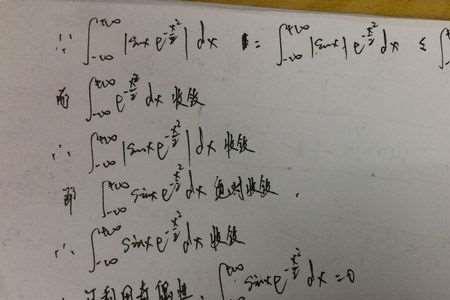 ∵ ∫_{-∞}^{+∞} |sinx e^{-x²/2}| dx = ∫_{-∞}^{+∞} |sinx| e^{-x²/2} dx ≤ ∫
而 ∫_{-∞}^{+∞} e^{-x²/2} dx 收敛
∴ ∫_{-∞}^{+∞} |sinx e^{-x²/2}| dx 收敛
即 ∫_{-∞}^{+∞} sinx e^{-x²/2} dx 绝对收敛.
∴ ∫_{-∞}^{+∞} sinx e^{-x²/2} dx 收敛
利用奇偶性, ∫_{-∞}^{+∞} sinx e^{-x²/2} dx = 0